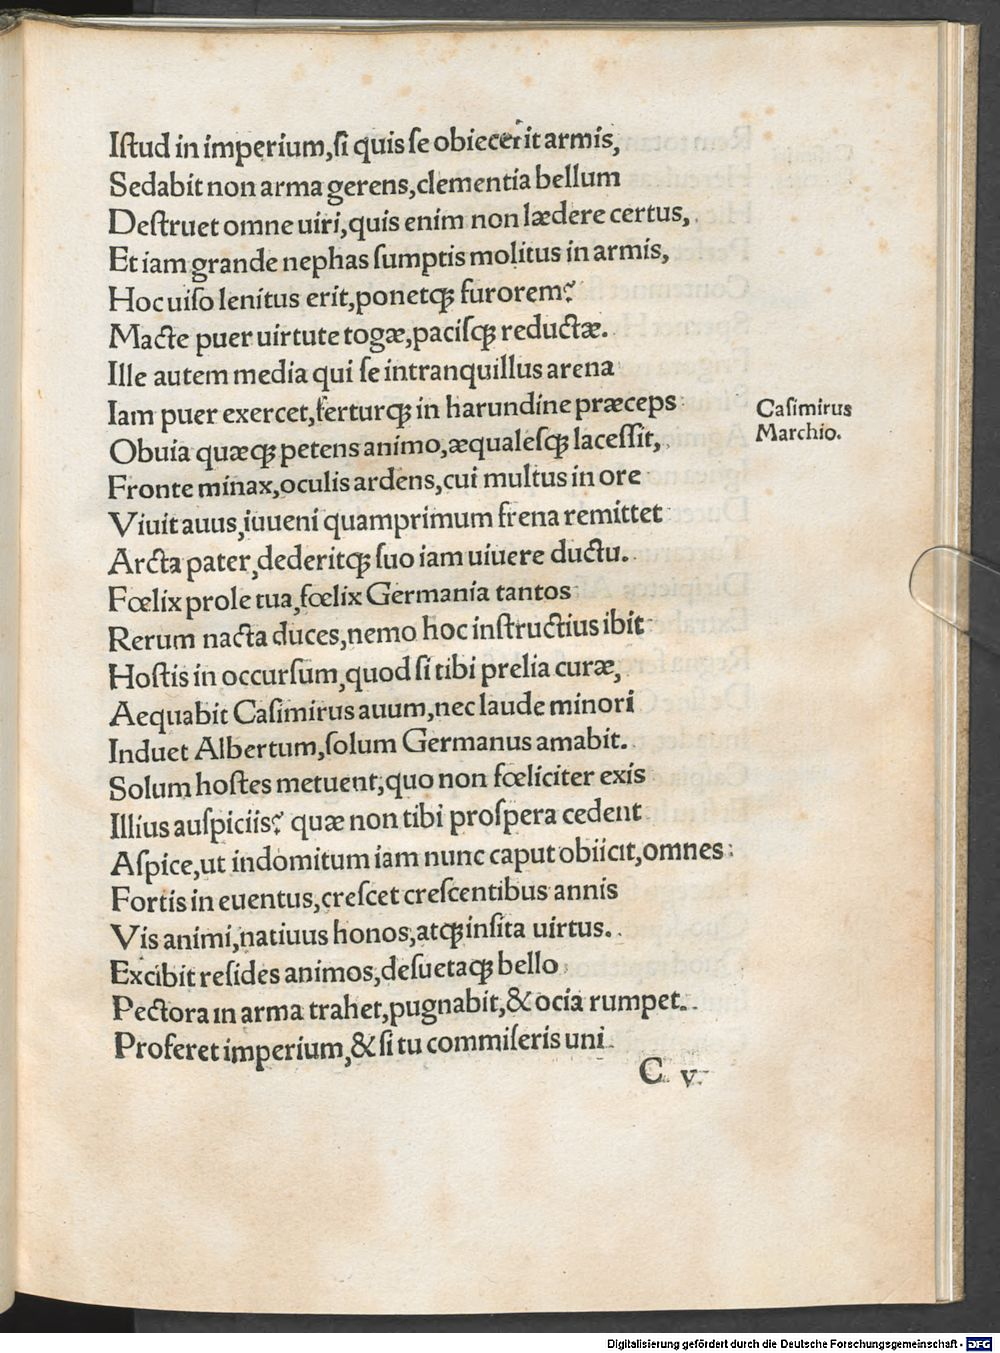 Iſtud in imperium,ſi quis ſe obiecerit armis,
Sedabit non arma gerens,clementia bellum
Deſtruet omne uiri,quis enim non lædere certus,
Et iam grande nephas ſumptis molitus in armis,
Hoc uiſo lenitus erit,ponetqꝫ furorem?
Macte puer uirtute togæ,paciſqꝫ reductæ.
Ille autem media qui ſe intranquillus arena
Iam puer exercet,ferturqꝫ in harundine præceps
Casimirus
Marchio.
Obuia quæqꝫ petens animo,æqualeſqꝫ laceſſit,
Fronte minax,oculis ardens,cui multus in ore
Viuit auus,iuueni quamprimum frena remittet
Arcta pater,dederitqꝫ ſuo iam uiuere ductu.
Fœlix prole tua,fœlix Germania tantos
Rerum nacta duces,nemo hoc inſtructius ibit
Hoſtis in occurſum,quod ſi tibi prelia curæ,
Aequabit Caſimirus auum,nec laude minori
Induet Albertum,ſolum Germanus amabit.
Solum hoſtes metuent,quo non fœliciter exis
Illius auſpiciis? quæ non tibi proſpera cedent
Aſpice,ut indomitum iam nunc caput obiicit,omnes
Fortis in euentus,creſcet creſcentibus annis
Vis animi,natiuus honos,atqꝫ inſita uirtus.
Excibit reſides animos,deſuetaqꝫ bello
Pectora in arma trahet,pugnabit,& ocia rumpet.
Proferet imperium,& ſi tu commiſeris uni
C v
Digitalisierung gefördert durch die Deutsche Forschungsgemeinschaft - DFG